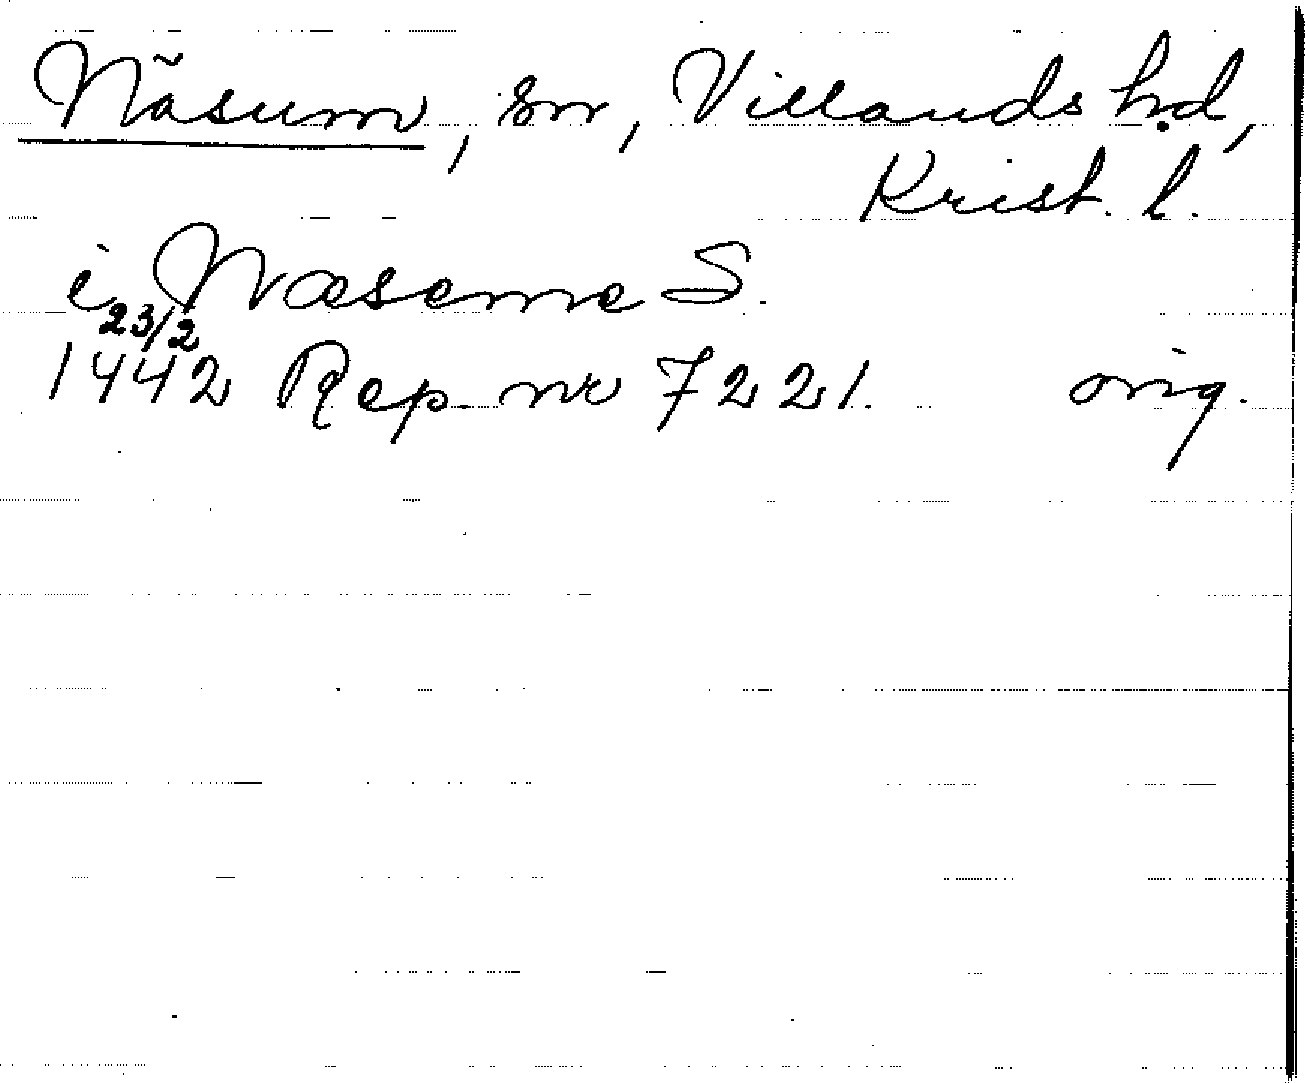 Näsum, sn, Villands hd,
Krist. l.
i Næseme S.
23/2
1442 Rep nr 7221. orig.